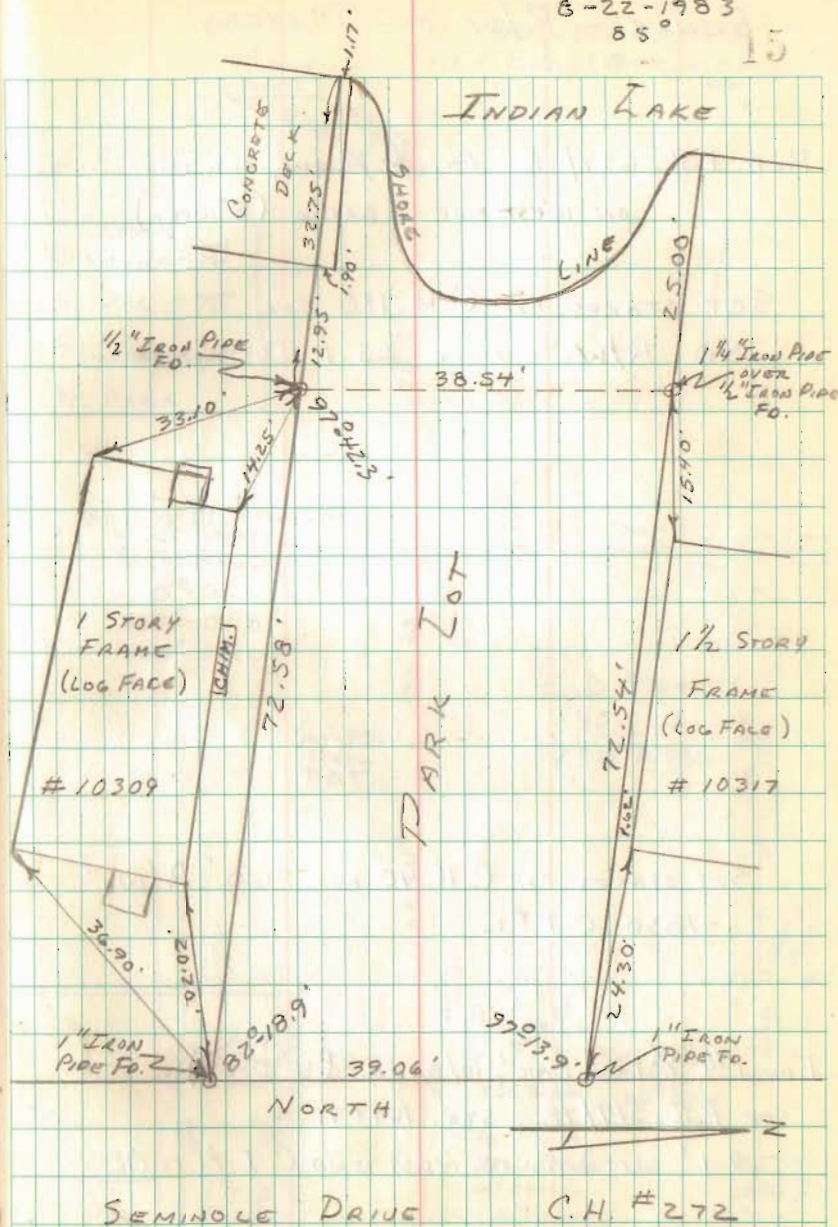 8-22-1983
85°
15
INDIAN LAKE
1.17'
CONCRETE
DECK
32.75'
SHORE
LINE
1.90'
12.95'
25.00'
1/2" IRON PIPE
FD.
38.54'
1 1/4" IRON PIPE
OVER
1/2" IRON PIPE
FD.
33.10'
14.25'
97°42.3'
15.40'
1 STORY
FRAME
(LOG FACE)
CHIM.
72.58'
PARK LOT
1 1/2 STORY
FRAME
(LOG FACE)
# 10309
72.54'
# 10317
1.62'
36.90'
20.20'
24.30'
1" IRON
PIPE FD.
82°-18.9'
39.06'
97°-13.9'
1" IRON
PIPE FD.
NORTH
Z
SEMINOLE DRIVE C.H. #272